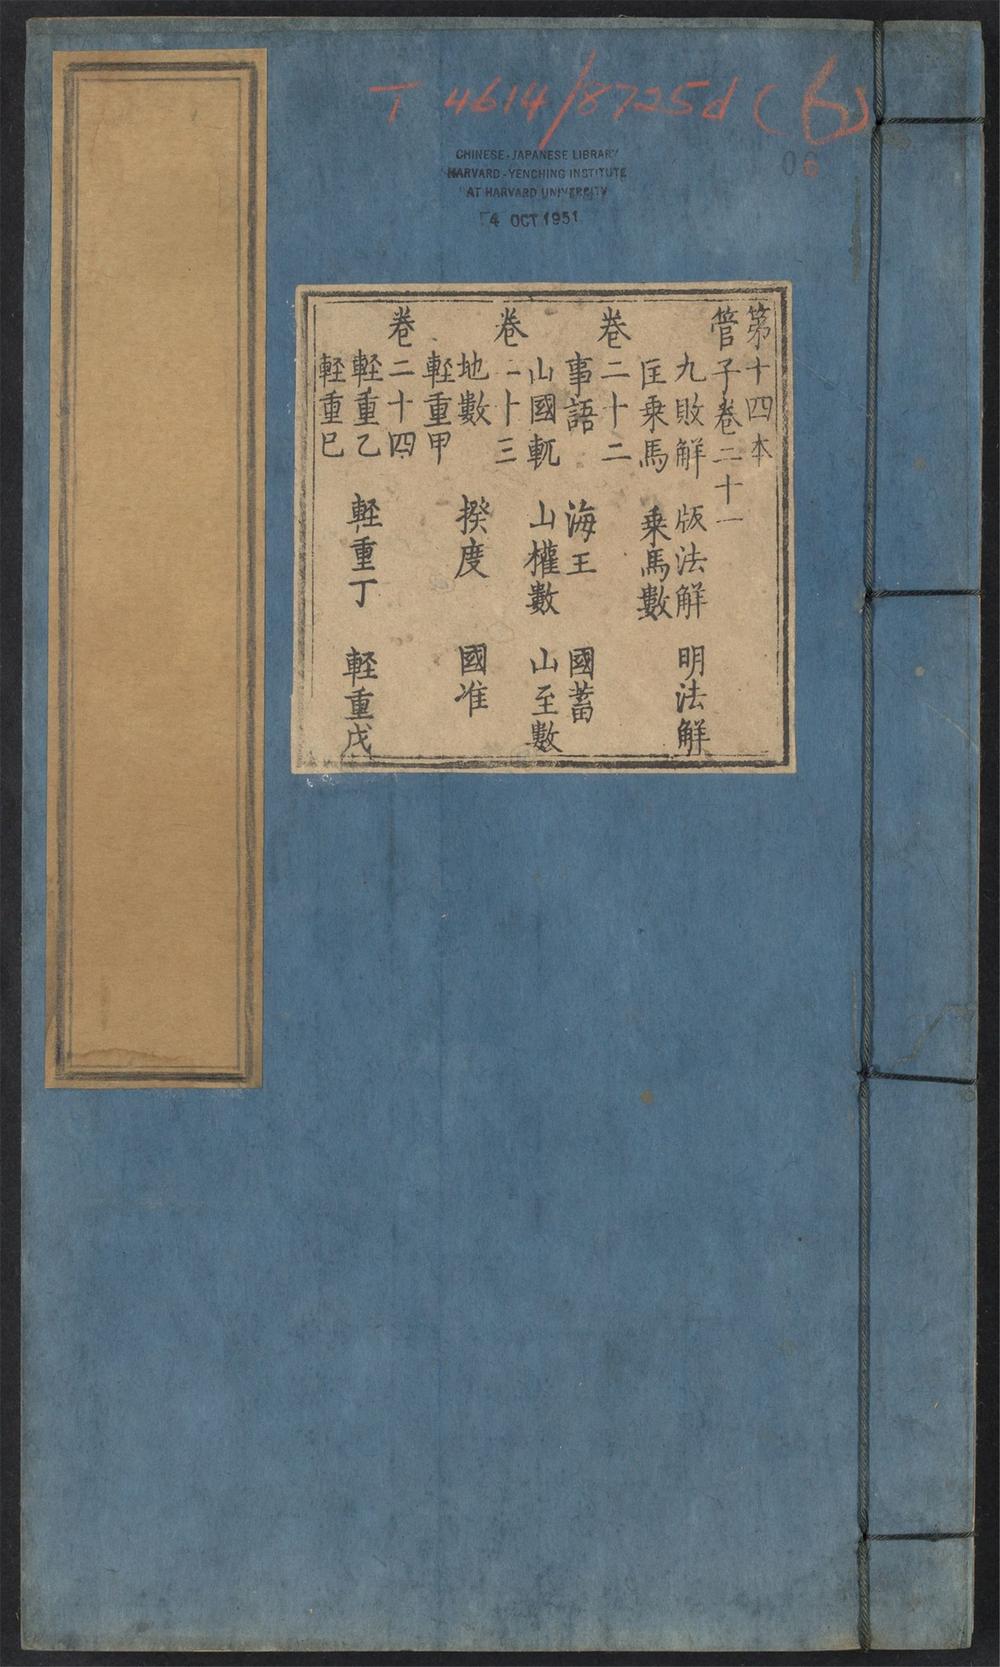 T 4614/8725d (6)
CHINESE-JAPANESE LIBRARY
HARVARD-YENCHING INSTITUTE
AT HARVARD UNIVERSITY
4 OCT 1951
06
第十四本
管子卷二十一
九敗解 版法解 明法解
匡乘馬 乘馬數
卷二十二
事語 海王 國蓄
山國軏 山權數 山至數
卷二十三
地數 揆度 國准
輕重甲
卷二十四
輕重乙 輕重丁 輕重戊
輕重已